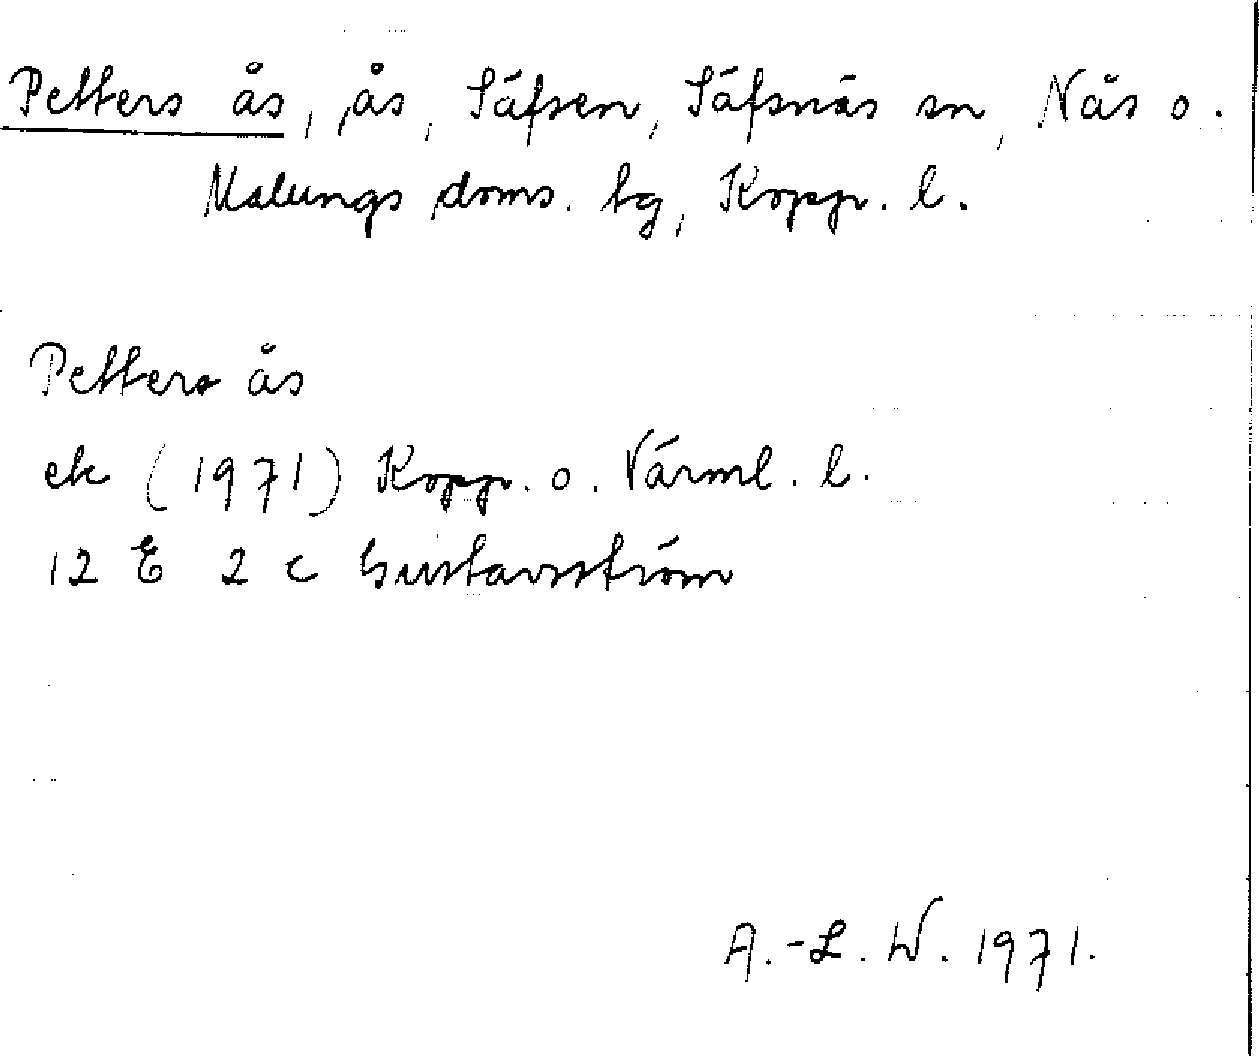 Petters ås, ås, Säfsen, Säfsnäs sn, Nås o.
Malungs doms. tg, Kopp. l.
Petters ås
ek (1971) Kopp. o. Värml. l.
12 E 2 c Gustavsström
A.-L. W. 1971.